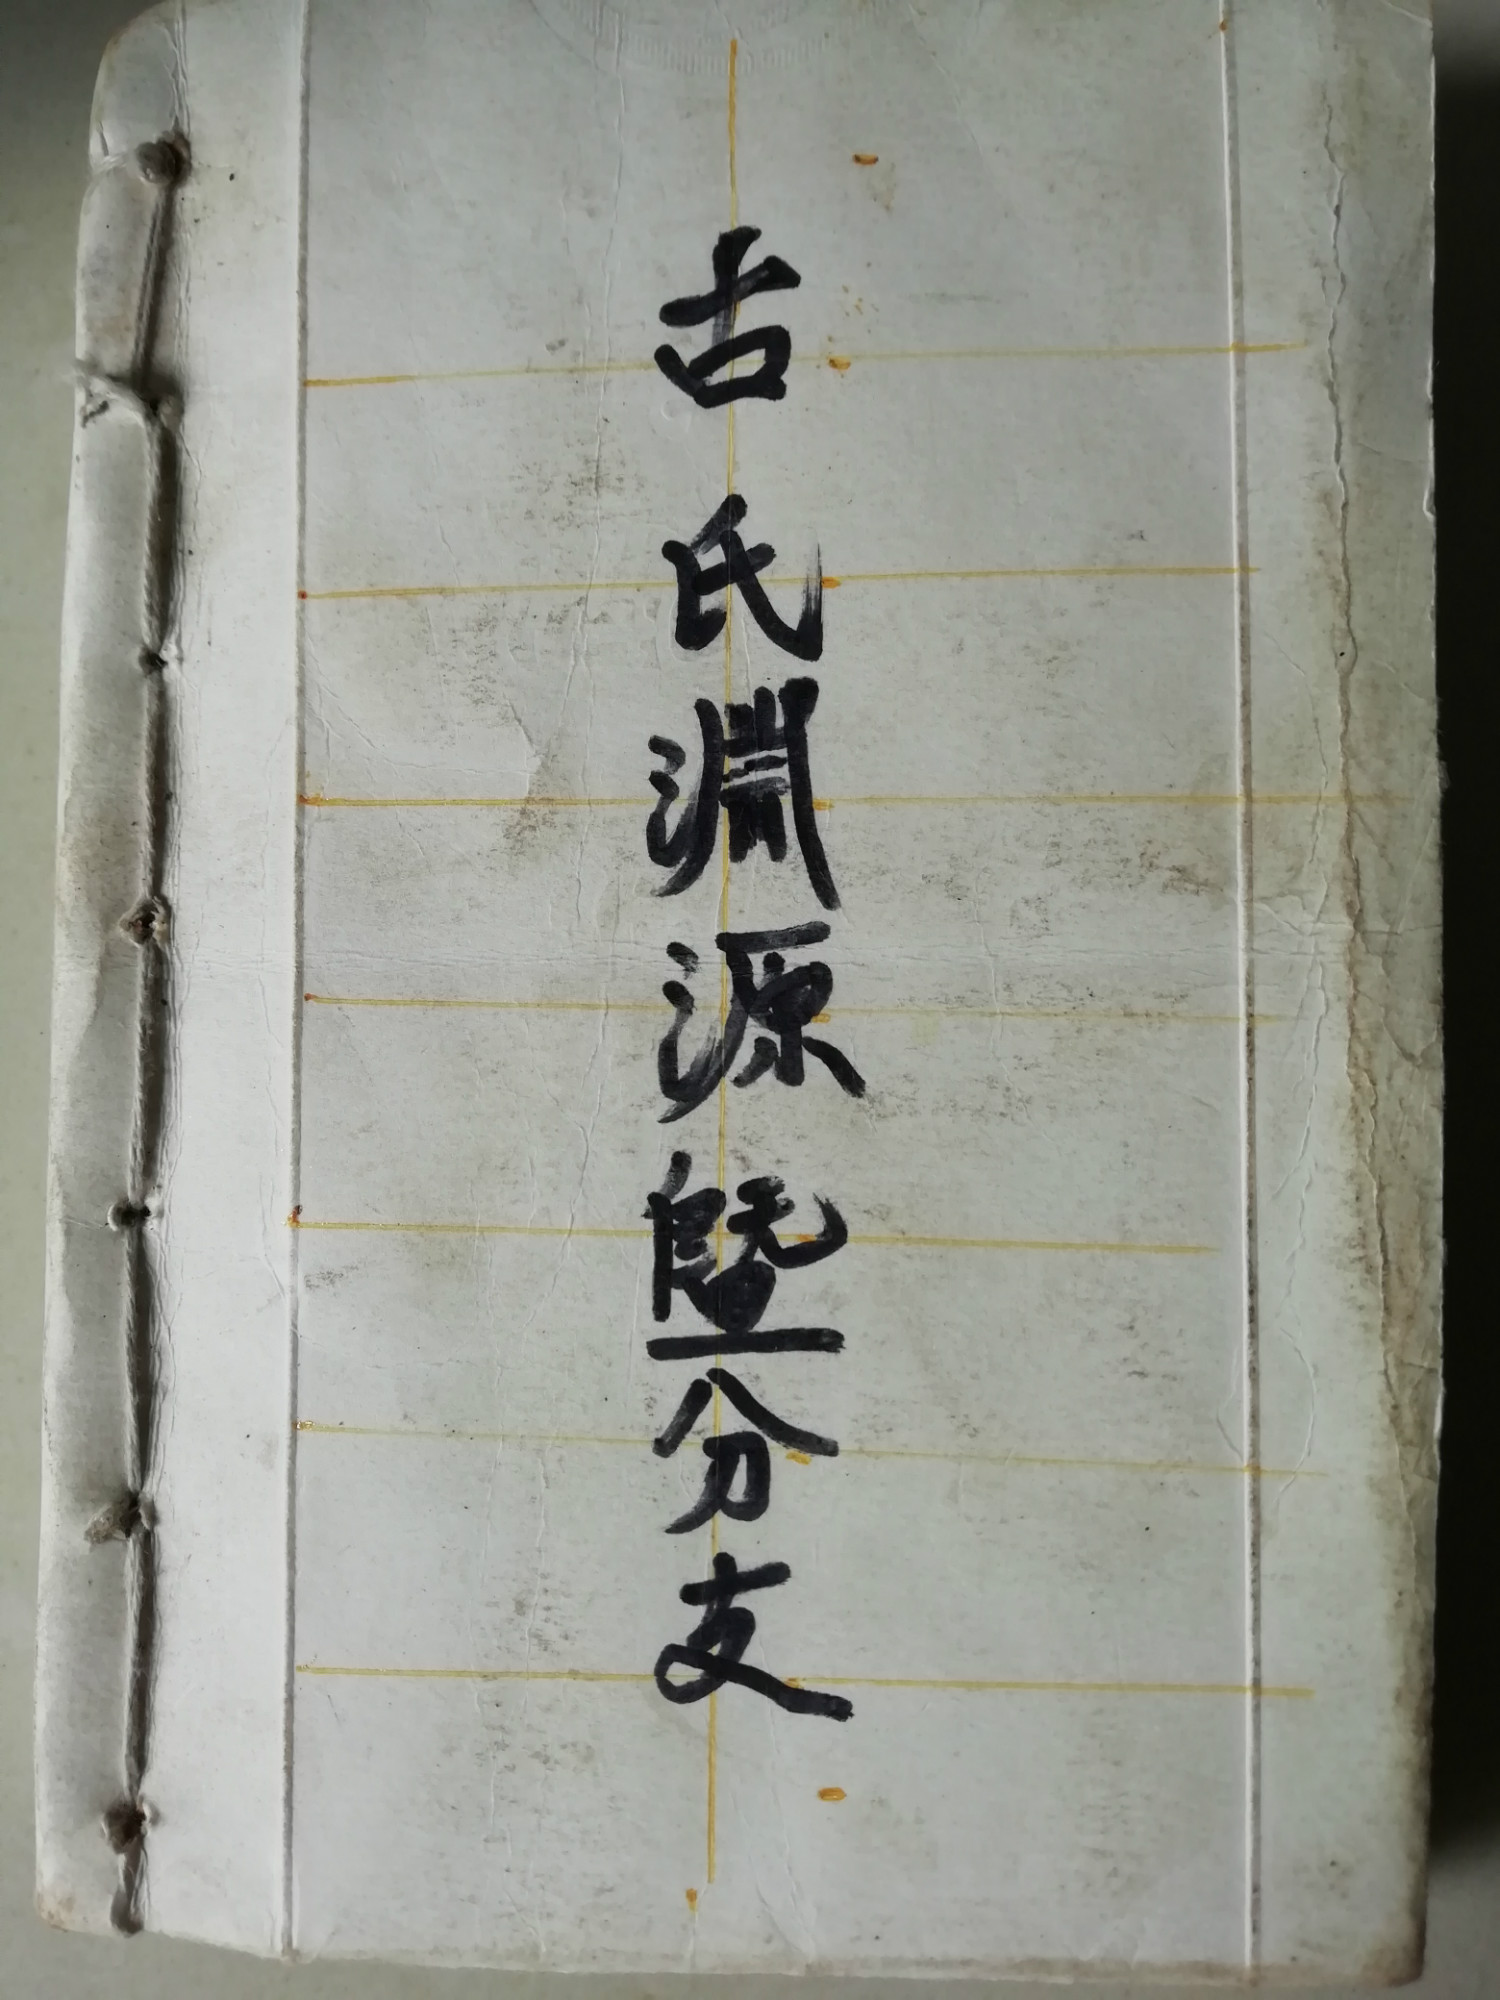 古氏淵源暨分支